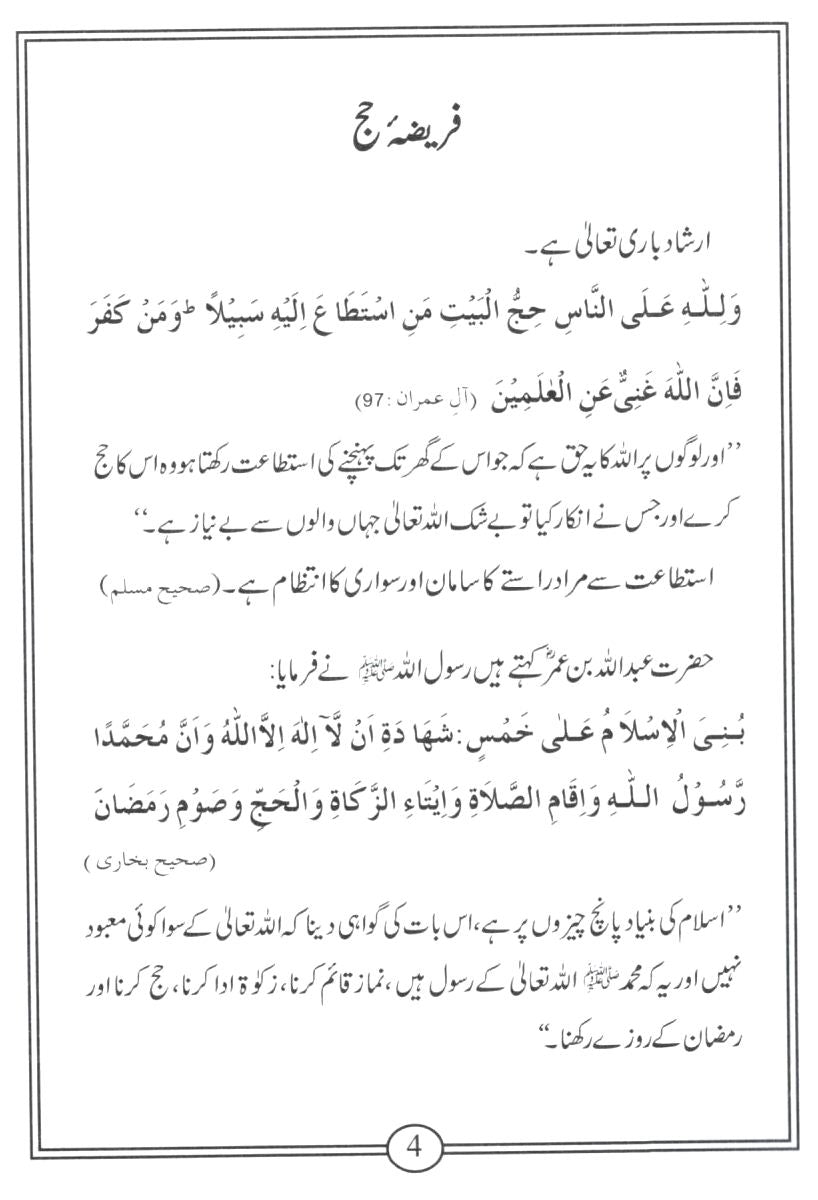 فریضۂ حج
ارشاد باری تعالیٰ ہے۔
وَلِلّٰهِ عَلَى النَّاسِ حِجُّ الْبَيْتِ مَنِ اسْتَطَاعَ اِلَيْهِ سَبِيْلًا ؕ وَمَنْ كَفَرَ
فَاِنَّ اللّٰهَ غَنِىٌّ عَنِ الْعٰلَمِيْنَ (آلِ عمران :97)
’’اور لوگوں پر اللہ کا یہ حق ہے کہ جو اس کے گھر تک پہنچنے کی استطاعت رکھتا ہو وہ اس کا حج
کرے اور جس نے انکار کیا تو بے شک اللہ تعالیٰ جہاں والوں سے بے نیاز ہے۔‘‘
استطاعت سے مراد راستے کا سامان اور سواری کا انتظام ہے۔ (صحیح مسلم)
حضرت عبداللہ بن عمرؓ کہتے ہیں رسول اللہ ﷺ نے فرمایا:
بُنِىَ الْاِسْلَامُ عَلٰى خَمْسٍ: شَهَادَةِ اَنْ لَّآ اِلٰهَ اِلَّا اللّٰهُ وَاَنَّ مُحَمَّدًا
رَّسُوْلُ اللّٰهِ وَاِقَامِ الصَّلَاةِ وَاِيْتَاءِ الزَّكَاةِ وَالْحَجِّ وَصَوْمِ رَمَضَانَ
(صحیح بخاری)
’’اسلام کی بنیاد پانچ چیزوں پر ہے، اس بات کی گواہی دینا کہ اللہ تعالیٰ کے سوا کوئی معبود
نہیں اور یہ کہ محمد ﷺ اللہ تعالیٰ کے رسول ہیں، نماز قائم کرنا، زکوٰۃ ادا کرنا، حج کرنا اور
رمضان کے روزے رکھنا۔‘‘
4